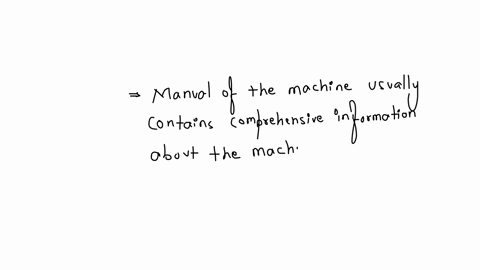 ⇒ Manual of the machine usually
contains comprehensive information
about the mach.